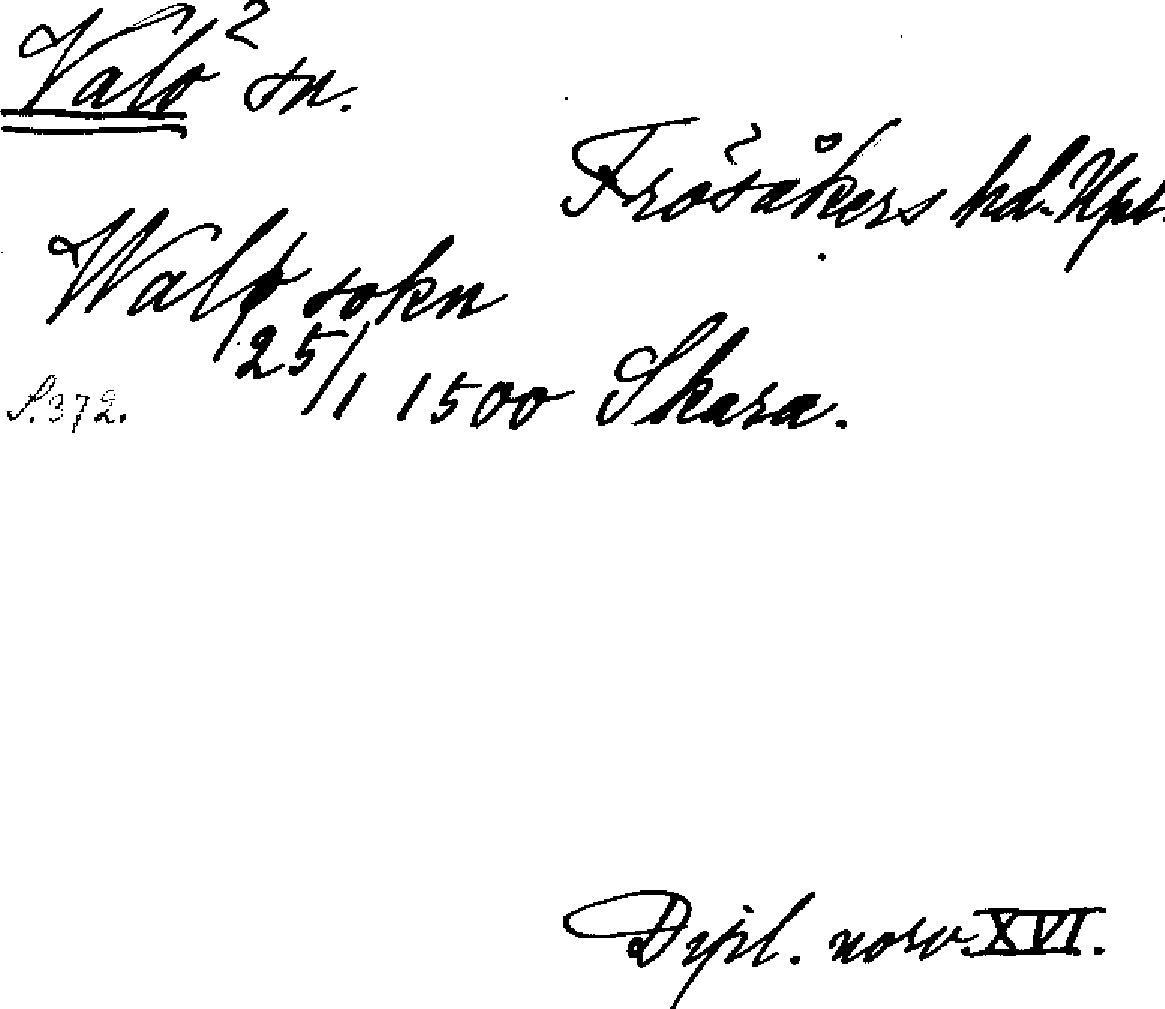 Valö sn.
Frösåkers hd. Upl.
Walø sokn
25/1 1500 Skara.
S. 372.
Dipl. norv. XVI.